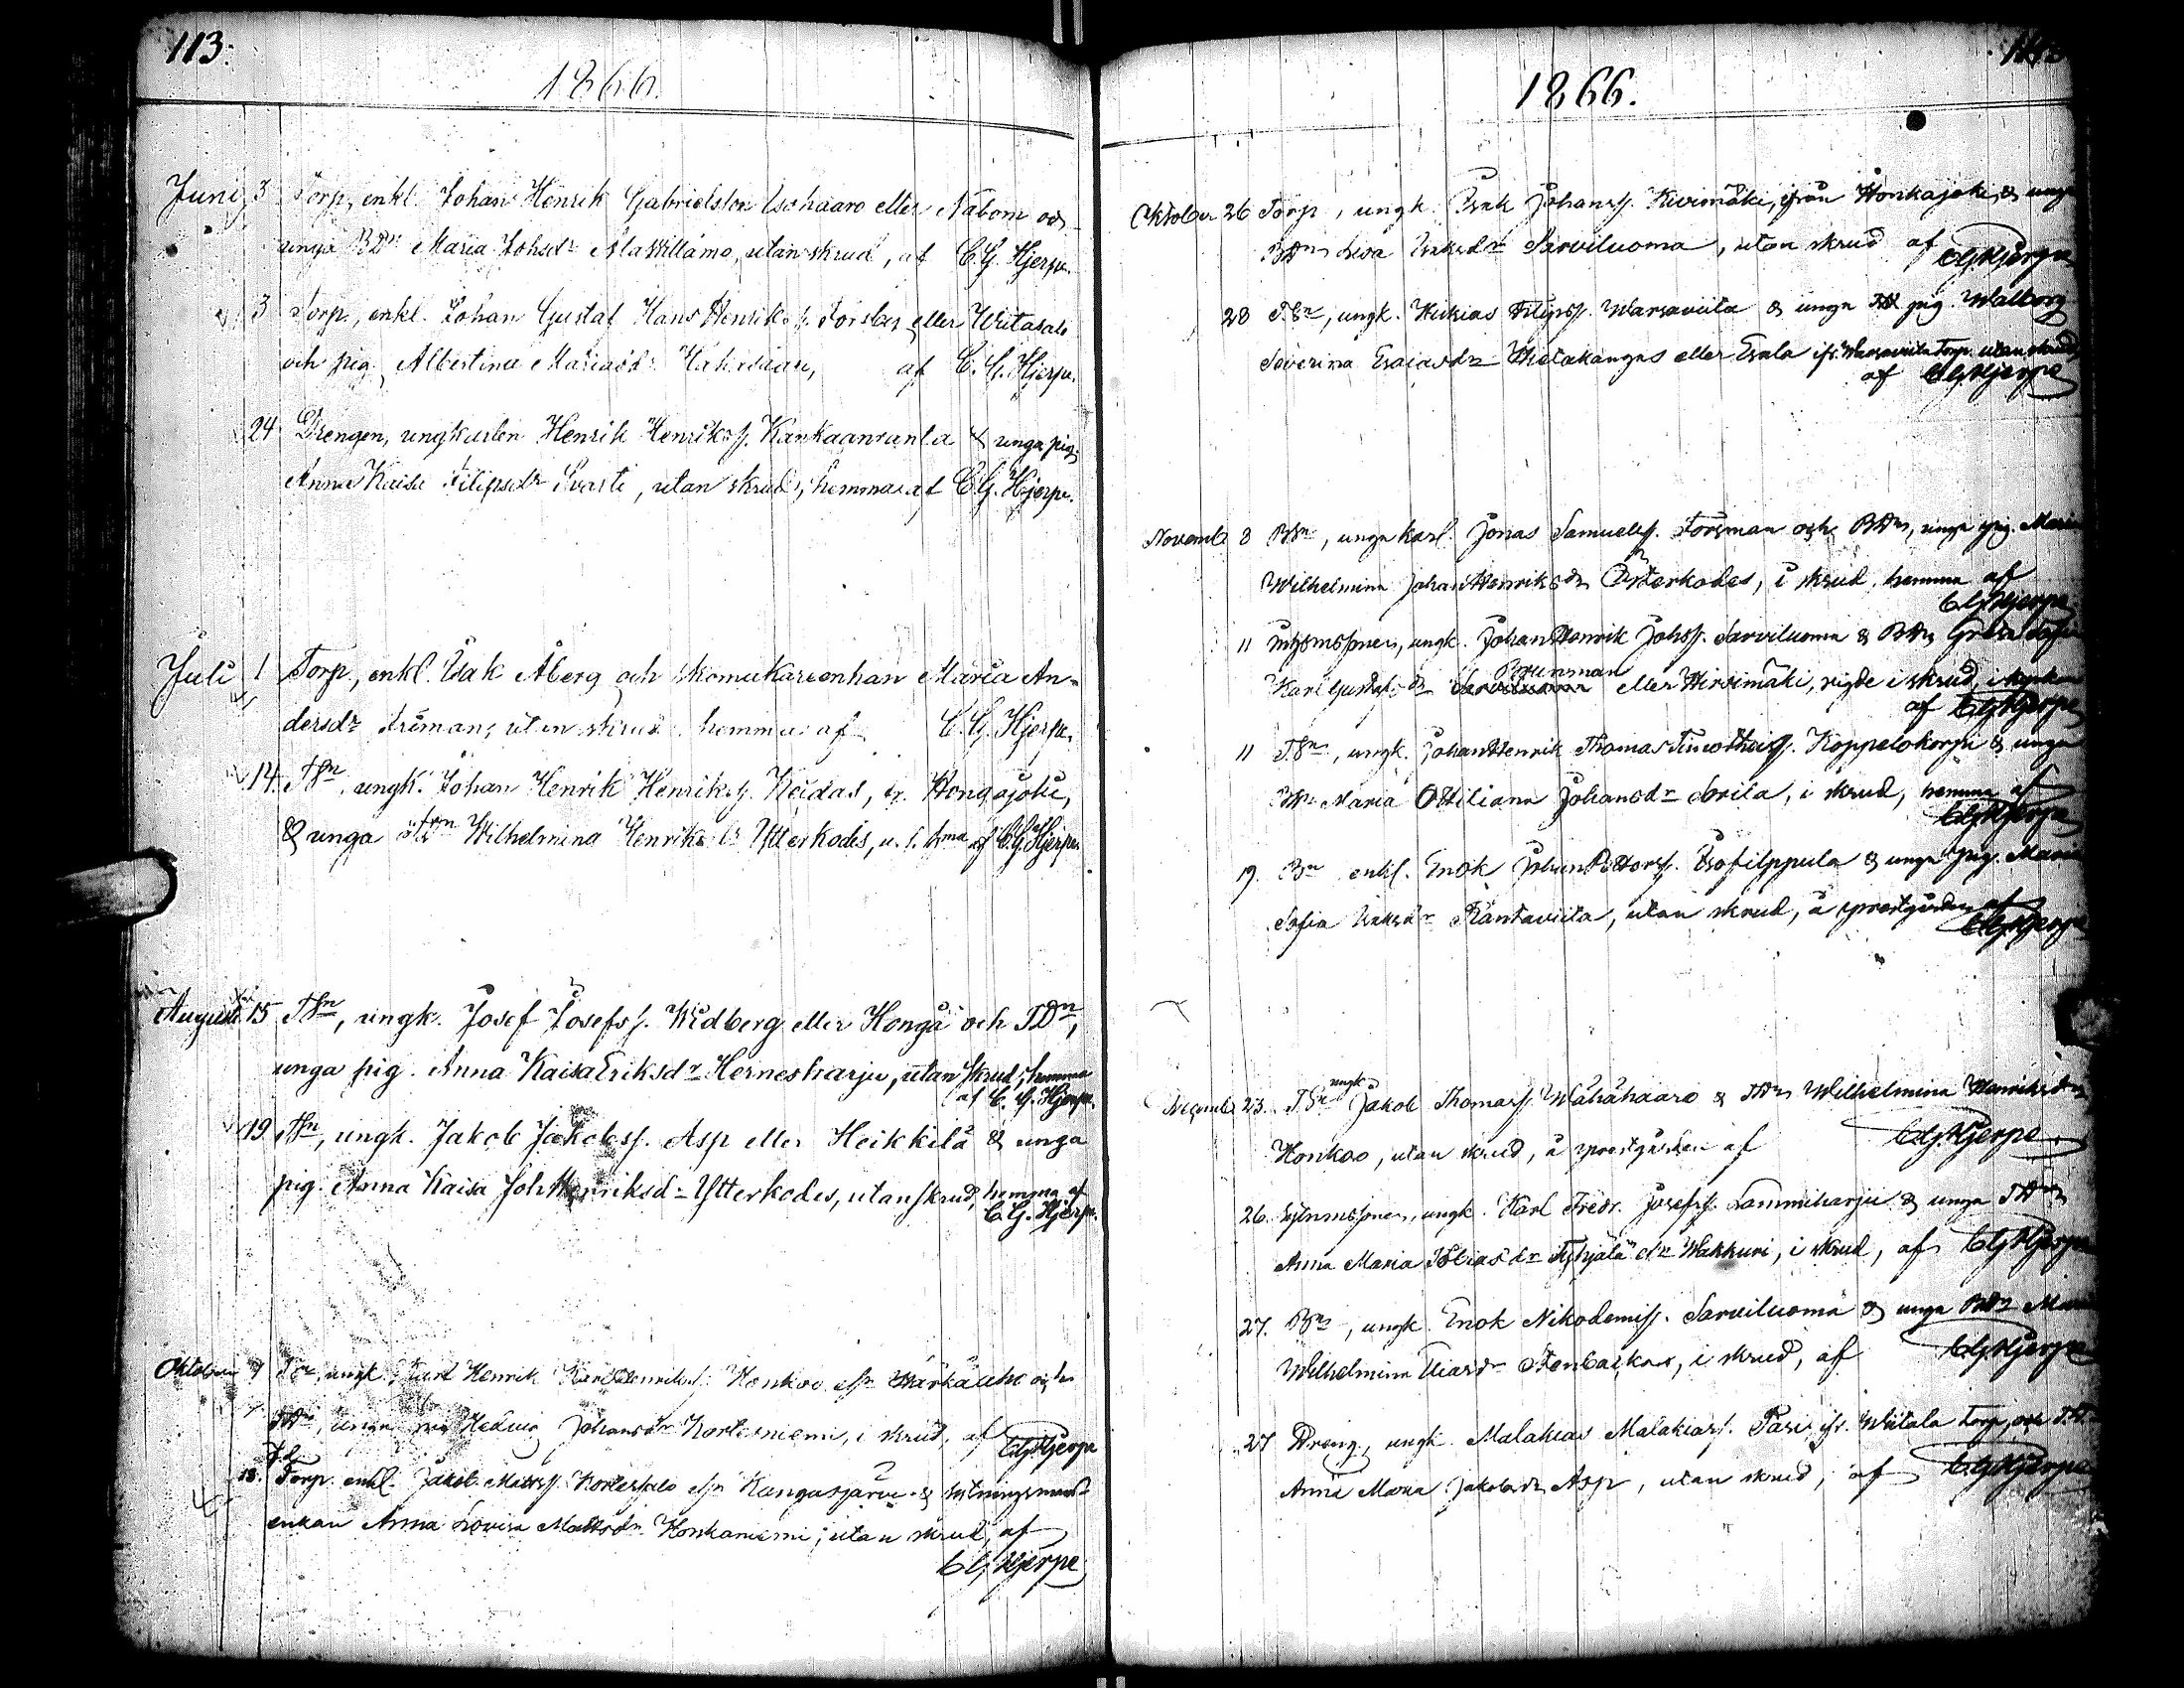 113.
1866.
Juni 3 Torp, enkl. Johan Henrik Gabrielsson Isohaaro eller Näbom och
unga BDn Maria Johsdr Alavillamo, utan skrud, af C.G. Hjerpe.
3 Torp, enkl. Johan Gustaf Hans Henriks s. Forsberg eller Wiitasalo
och pig. Albertina Mariasdr af C. G. Hjerpe.
24 Drengen, ungkarlen Henrik Henrikss. Kankaanranta & unga pig.
Anna Kaisa Filipsdr Svarti, utan skrud, hemma af C.G. Hjerpe.
Juli 1 Torp, enkl. Isak Åberg och skomakareenkan Maria An-
dersdr utan skrud hemma af C. G. Hjerpe.
14. TSn, ungk. Johan Henrik Henrikss. Keidas, fr. Hongojoki,
& unga Wilhelmina Henriksdr Ytterkodes, u. s. hma af C.G. Hjerpe.
Augusti 15 TSn, ungk. Josef Josefss. Widberg eller Hongä och TDn,
unga pig. Anna Kaisa Eriksdr Hernesharju, utan skrud, hemma
af C. G. Hjerpe.
19 TSn, ungk. Jakob Jakobss. Asp eller Heikkilä & unga
pig. Anna Kaisa Joh Henriksdr Ytterkodes, utan skrud, hemma af
C. G. Hjerpe.
Oktober 7 ungk. Karl Henrik Karl Henrikss. Honkoo och
TDn, unga pig Hedvig Johansdr Kortesniemi, i skrud, af CGHjerpe
18. Torp. enkl. Jakob Matss. Kortessalo Kangasjärvi & sytningsmans
enkan Anna Lovisa Matsdr Honkaniemi, utan skrud, af
CGHjerpe
1866.
Oktober 26 Torp, ungk. Isak Johanss. Kivimäki, från Honkajoki, & unga
BDn Lisa Isaksdr Sarviluoma, utan skrud af CGHjerpe
28 TSn, ungk. Hiskias Filipss. Warsaviita & unga pig. Walborg
Severina Esaiasdr Wietakangas eller Esala fr. Warsaviita Torp. utan skrud,
af CGHjerpe
Novemb. 8 BSn, unga karl. Jonas Samuelss. Forsman och BDn, unga pig. Maria
Wilhelmina Johan Henriksdr Ytterkodes, i skrud, hemma af
CGHjerpe
11 ungk. Johan Henrik Johss. Sarviluoma & BDn Greta Sofia
Karl Gustafsdr Brunsman eller Hirsimäki, vigde i skrud, i kyrkan
af CGHjerpe
11 TSn, ungk. Johan Henrik Thomas Timotheuss. Koppelokorpi & unga
Maria Ottiliana Johansdr Sorila, i skrud, hemma af
CGHjerpe
19. enkl. Enok Johan Petters. Isofilppula & unga pig. Maria
Sofia Isaksdr Rantaviita, utan skrud, å prestgården af
CGHjerpe
Decemb. 23. TSn ungk Jakob Thomass. Wähähaaro & TDn Wilhelmina Henriksdr
Honkoo, utan skrud, å prestgården af CGHjerpe
26. ungk. Karl Fredr. Josefss. Lammiharju & unga TDn
Anna Maria Tobiasdr Wakkuri, i skrud, af CGHjerpe
27. BSn, ungk Enok Nikodemiss. Sarviluoma & unga BDn Maria
Wilhelmina Eliasdr Stenbacka, i skrud, af CGHjerpe
27 Dreng, ungk Malakias Malakiass. Pasi, fr. Wiitala torp, och TDn
Anna Maria Jakobsdr Asp, utan skrud, af CGHjerpe